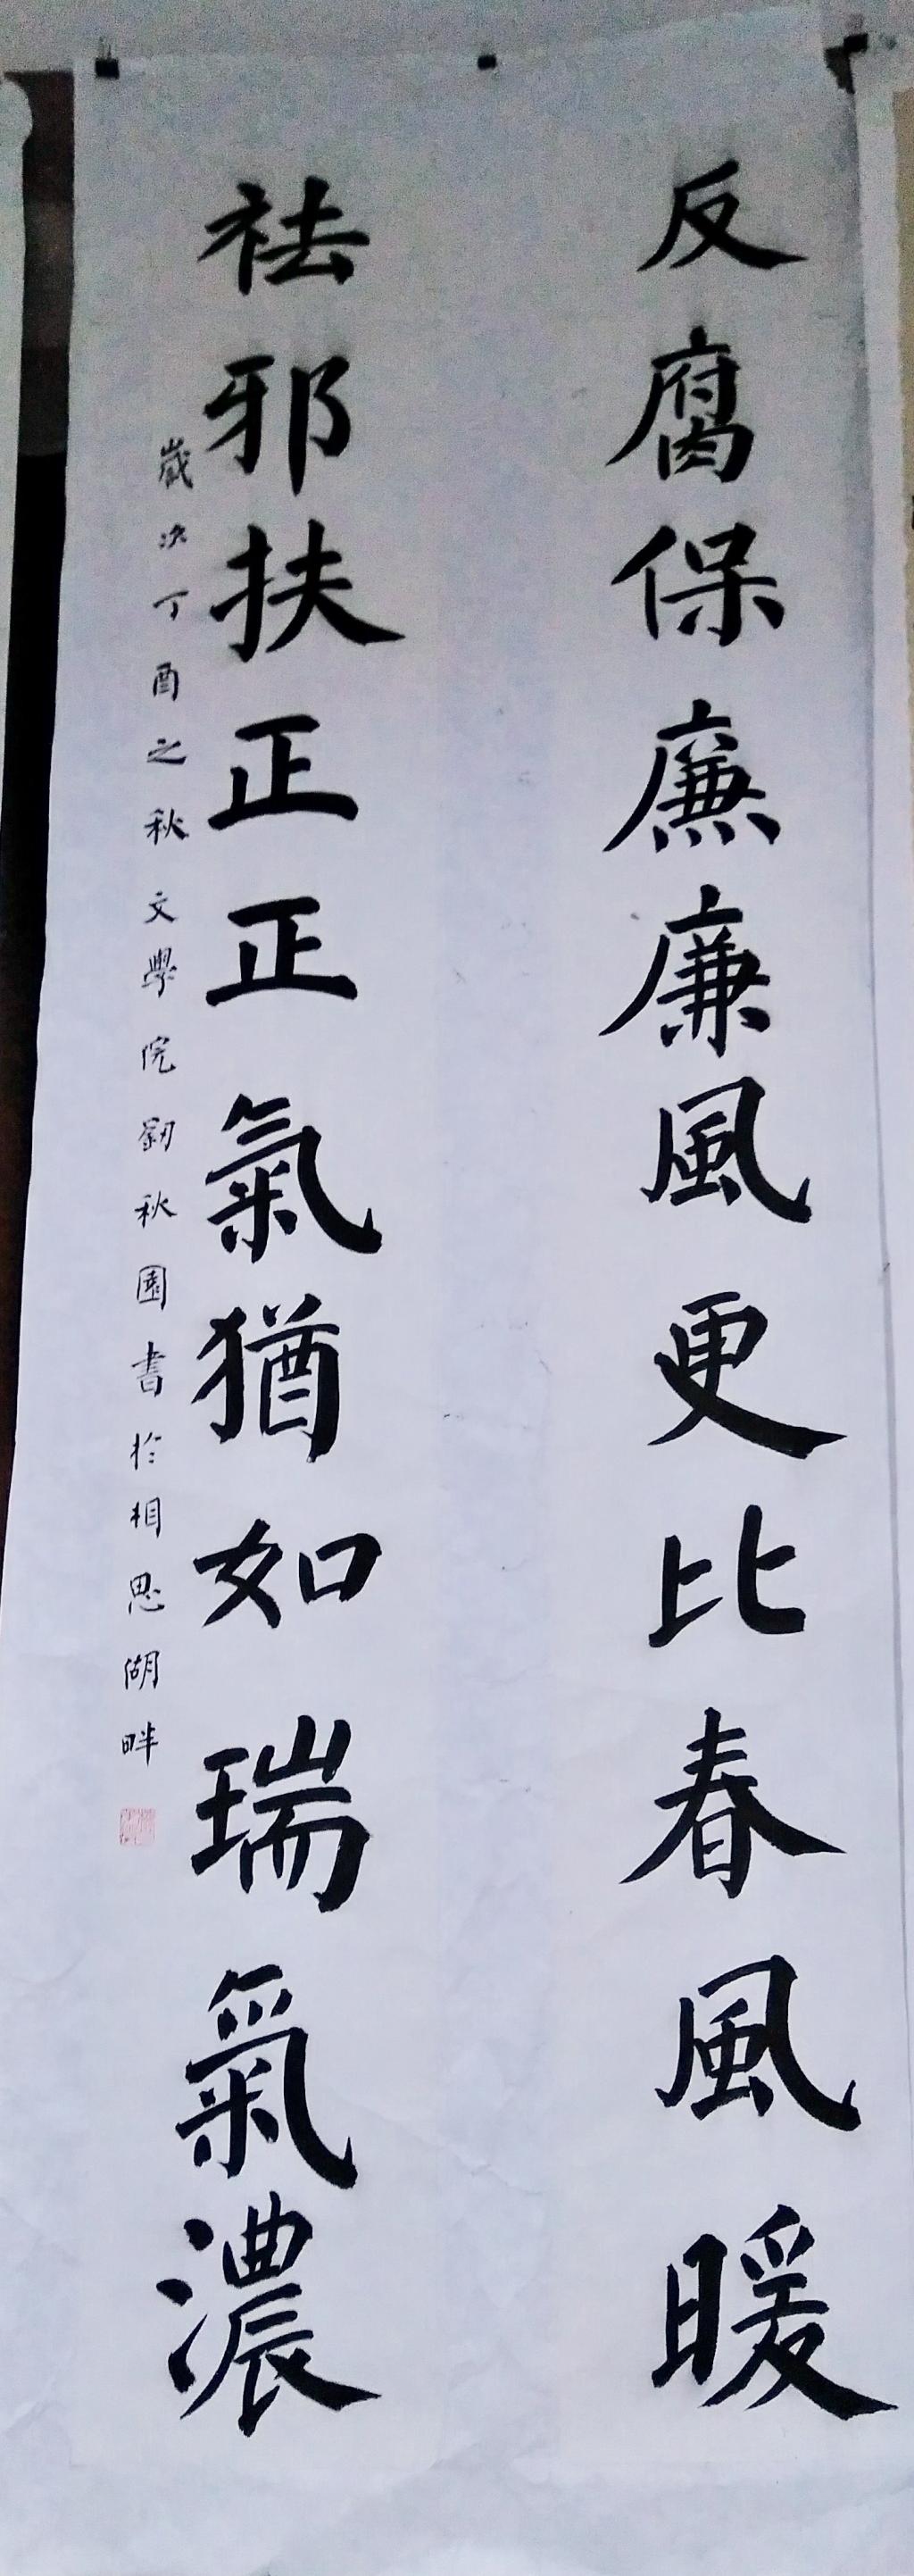 反腐保廉廉風更比春風暖
祛邪扶正正氣猶如瑞氣濃
歲次丁酉之秋文學院劉秋園書於相思湖畔